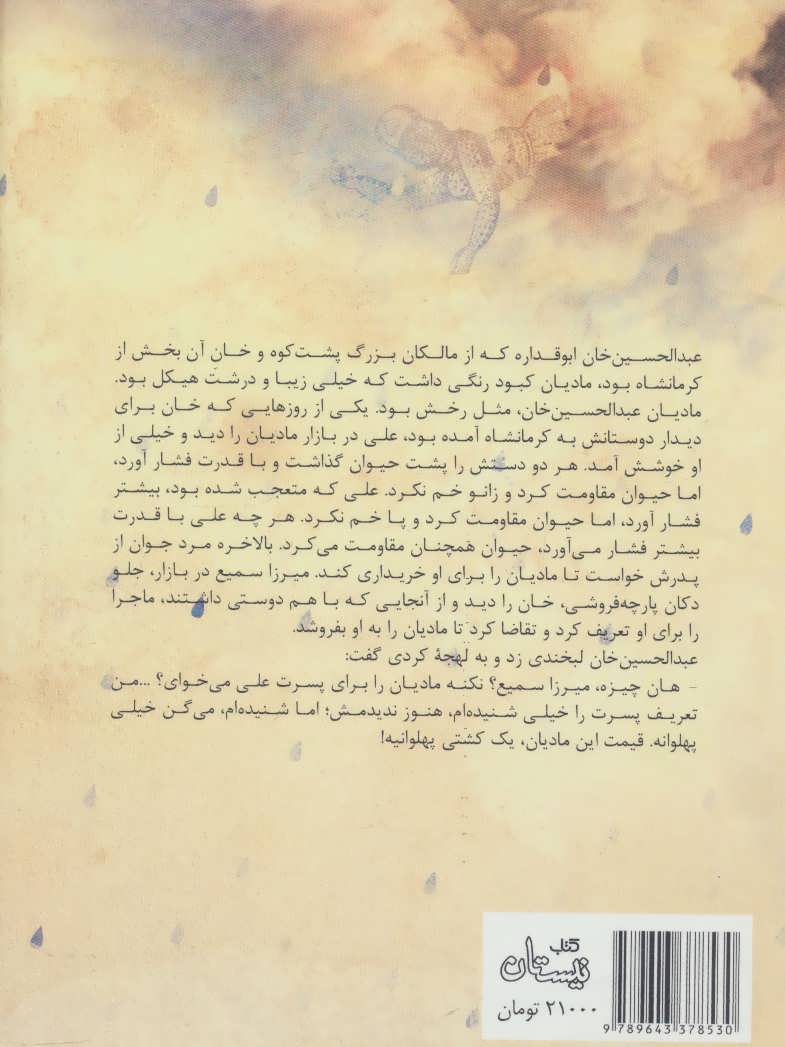 عبدالحسین‌خان ابوقداره که از مالکان بزرگ پشت‌کوه و خانِ آن بخش از
کرمانشاه بود، مادیان کبود رنگی داشت که خیلی زیبا و درشت هیکل بود.
مادیان عبدالحسین‌خان، مثل رخش بود. یکی از روزهایی که خان برای
دیدار دوستانش به کرمانشاه آمده بود، علی در بازار مادیان را دید و خیلی از
او خوشش آمد. هر دو دستش را پشت حیوان گذاشت و با قدرت فشار آورد،
اما حیوان مقاومت کرد و زانو خم نکرد. علی که متعجب شده بود، بیشتر
فشار آورد، اما حیوان مقاومت کرد و پا خم نکرد. هر چه علی با قدرت
بیشتر فشار می‌آورد، حیوان همچنان مقاومت می‌کرد. بالاخره مرد جوان از
پدرش خواست تا مادیان را برای او خریداری کند. میرزا سمیع در بازار، جلو
دکان پارچه‌فروشی، خان را دید و از آنجایی که با هم دوستی داشتند، ماجرا
را برای او تعریف کرد و تقاضا کرد تا مادیان را به او بفروشد.
عبدالحسین‌خان لبخندی زد و به لهجهٔ کردی گفت:
- هان چیزه، میرزا سمیع؟ نکنه مادیان را برای پسرت علی می‌خوای؟ ...من
تعریف پسرت را خیلی شنیده‌ام، هنوز ندیدمش؛ اما شنیده‌ام، می‌گن خیلی
پهلوانه. قیمت این مادیان، یک کشتی پهلوانیه!
کتاب
نیستان
۲۱۰۰۰ تومان
9 789643 378530